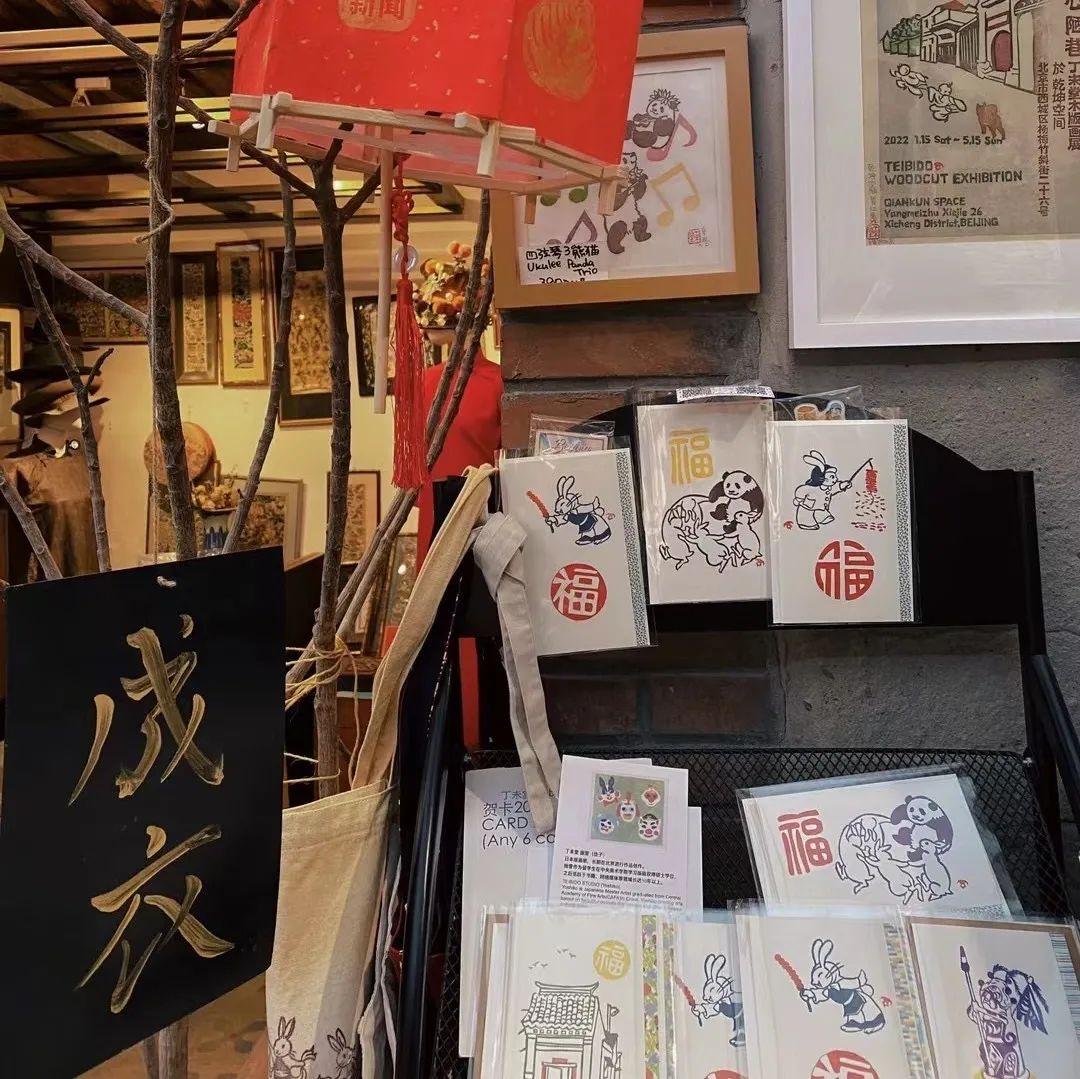 新聞
四弦琴3熊猫
Ukulee Panda
Trio
陋巷
丁未堂木版画展
於乾坤空间
北京市西城区杨梅竹斜街二十六号
2022 1.15 Sat ~ 5.15 Sun
TEIBIDO
WOODCUT EXHIBITION
QIANKUN SPACE
Yangmeizhu Xiejie 26
Xicheng District, BEIJING
福
福
福
成衣
丁未堂
贺卡20
CARD
(Any 6 ca
丁未堂
日本版画家，长期在北京进行作品创作。
TEIBIDO STUDIO (Yoshiko)
Yoshiko a Japanese Master Artist graduated from Central
Academy of Fine Arts(CAFA)
福
福
福
福